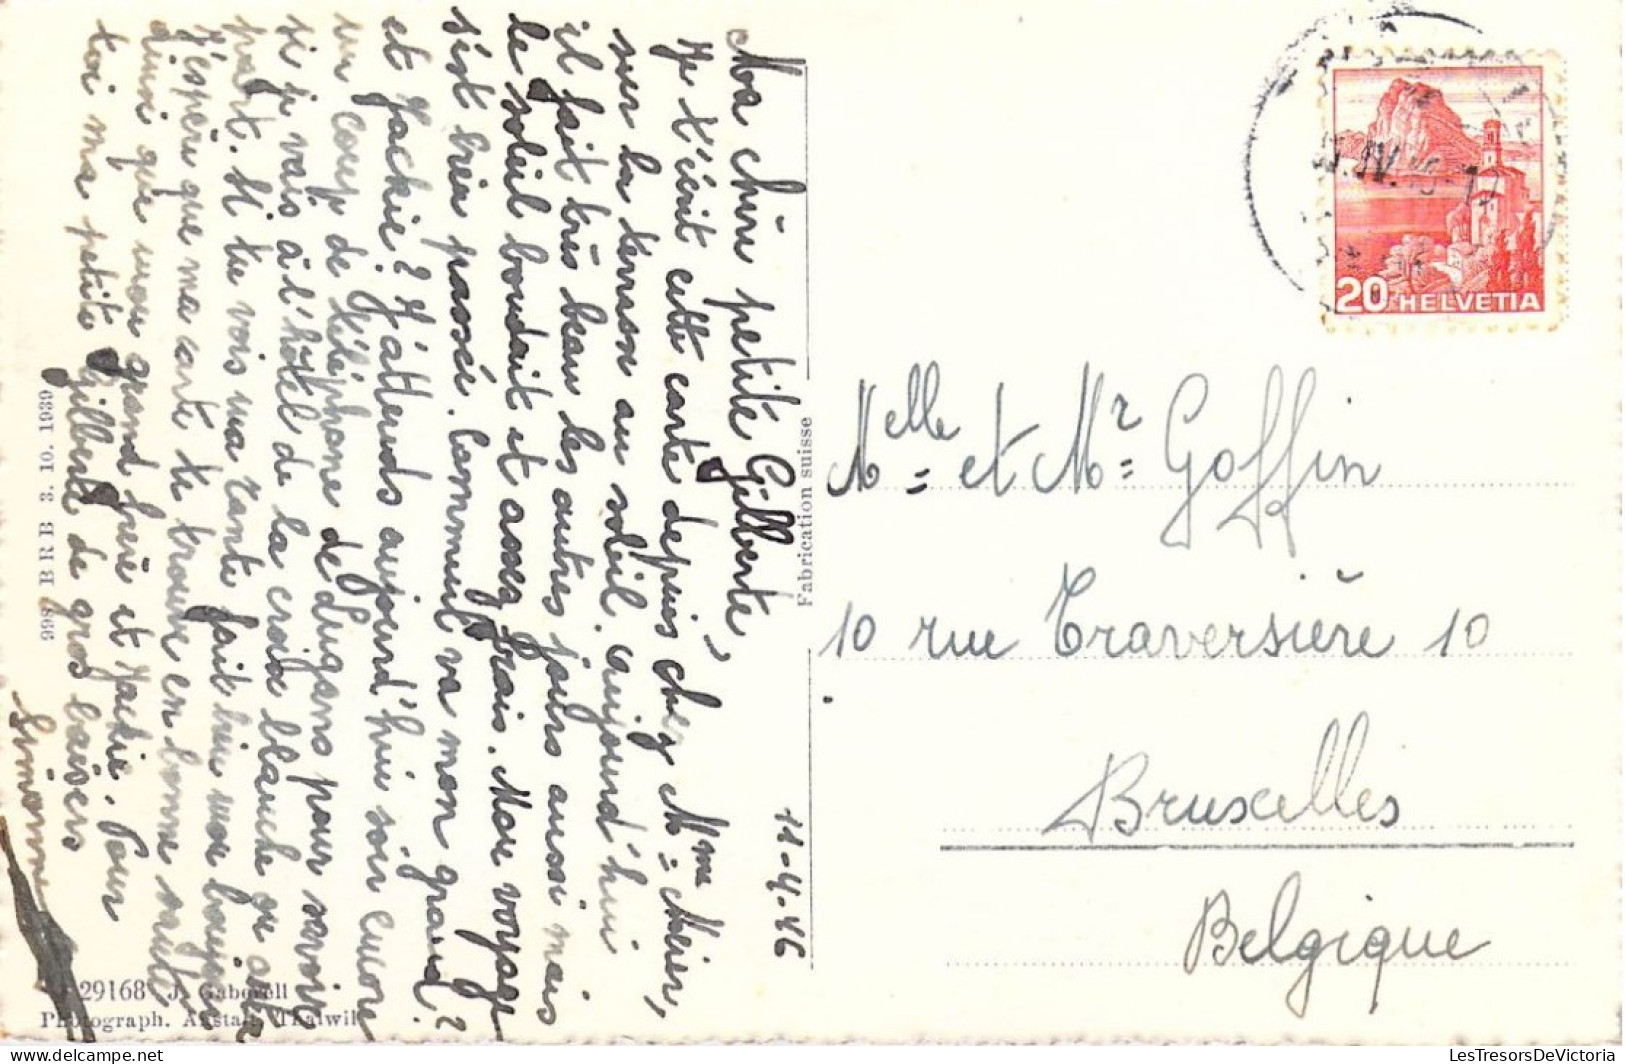 11-4.46
Ma chère petite Gilberte,
Je t'écrit cette carte depuis chez Mme Meier,
sur la terrasse au soleil. aujourd'hui
il fait très beau les autres jours aussi mais
le soleil boudait et assez frais. Mon voyage
s'est bien passée. Comment va mon grand
et Jackie? J'attends aujourd'hui soir encore?
un coup de téléphone de Lugano pour savoir
si je vais à l'hôtel de la croix blanche ou
part. Si tu vois ma tante fait lui mon bonjour
J'espère que ma carte te trouve en bonne santé
ainsi que mon grand frère et Jackie. Pour
toi ma petite Gilberte de gros baisers
Simonne
998 BRB 3. 10. 1939
29168 J. Gaberell
Photograph. Anstalt, Thalwil
Fabrication suisse
IV.46
20 HELVETIA
Melle et Mr Goffin
10 rue Traversière 10
Bruxelles
Belgique
LesTresorsDeVictoria